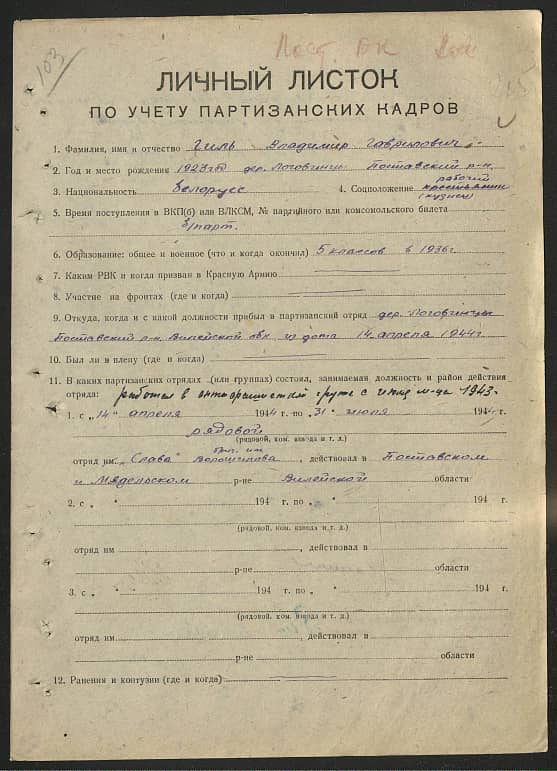 103
ЛИЧНЫЙ ЛИСТОК
ПО УЧЕТУ ПАРТИЗАНСКИХ КАДРОВ
1. Фамилия, имя и отчество Гиль Владимир Гаврилович
2. Год и место рождения 1923 г. дер. Логовинцы Поставский р-н
рабочий
3. Национальность белорусс 4. Соцположение крестьянин
(кузнец)
5. Время поступления в ВКП(б) или ВЛКСМ, № партийного или комсомольского билета
б/парт.
6. Образование: общее и военное (что и когда окончил) 5 классов в 1936 г.
7. Каким РВК и когда призван в Красную Армию
8. Участие на фронтах (где и когда)
9. Откуда, когда и с какой должности прибыл в партизанский отряд дер. Логовинцы
Поставский р-н Вилейской обл. из дома 14 апреля 1944 г.
10. Был ли в плену (где и когда)
11. В каких партизанских отрядах (или группах) состоял, занимаемая должность и район действия
отряда: работал в группе с 1943.
1. с „14“ апреля 1944 г. по „31“ июля 1944 г.
рядовой
(рядовой, ком. взвода и т. д.)
бриг. им
отряд им. „Слава“ Ворошилова, действовал в Поставском
и Мядельском р-не Вилейской области
2. с „ “ 194 г. по „ “ 194 г.
(рядовой, ком. взвода и т. д.)
отряд им , действовал в
р-не области
3. с „ “ 194 г. по „ “ 194 г.
(рядовой, ком. взвода и т. д.)
отряд им , действовал в
р-не области
12. Ранения и контузии (где и когда)